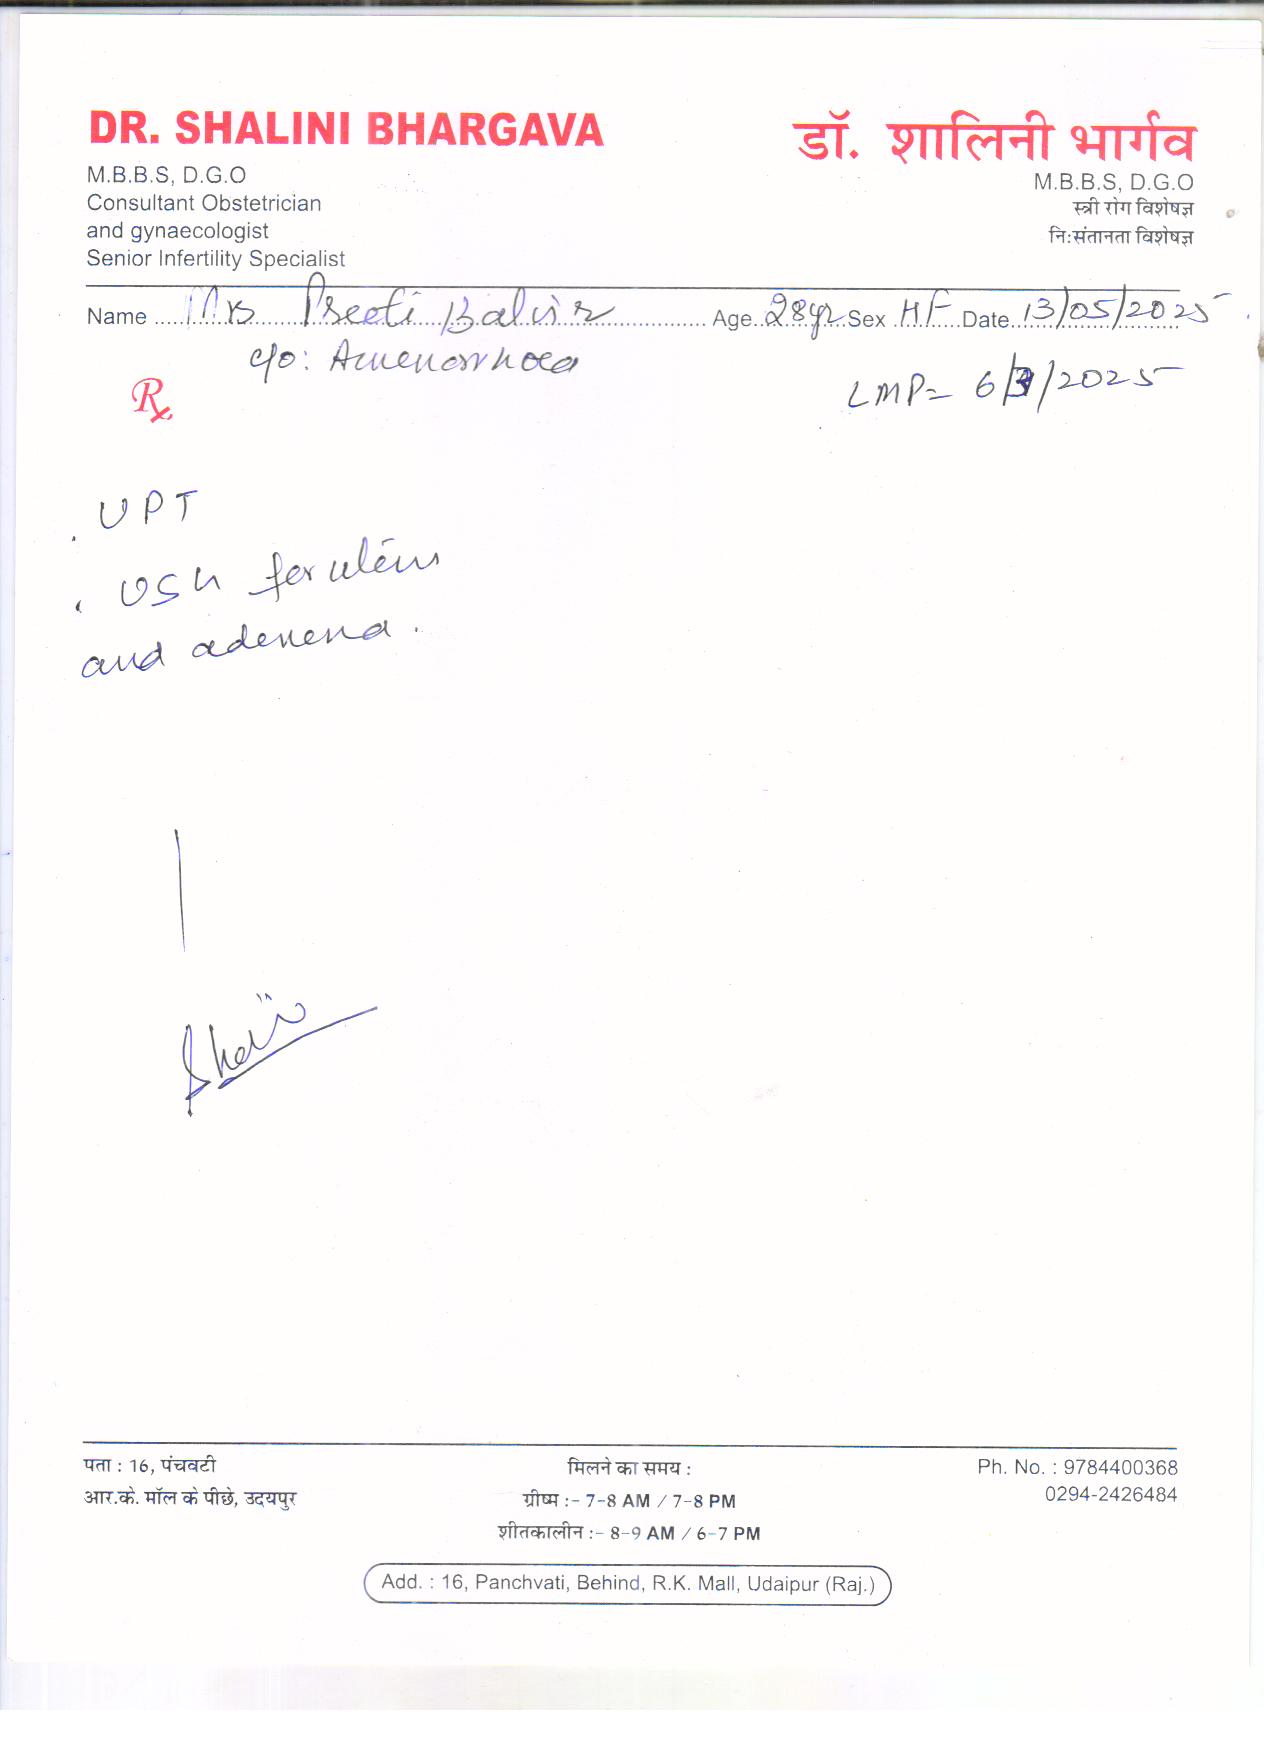 DR. SHALINI BHARGAVA
M.B.B.S, D.G.O
Consultant Obstetrician
and gynaecologist
Senior Infertility Specialist
डॉ. शालिनी भार्गव
M.B.B.S, D.G.O
स्त्री रोग विशेषज्ञ
नि:संतानता विशेषज्ञ
Name Mrs Preeti Balvir Age 28yr Sex HF Date 13/05/2025
c/o: Amenorrhoea
Rx
LMP= 6/3/2025
. UPT
. USG for uterus
and adenexa.
पता : 16, पंचवटी
आर.के. मॉल के पीछे, उदयपुर
मिलने का समय :
ग्रीष्म :- 7-8 AM / 7-8 PM
शीतकालीन :- 8-9 AM / 6-7 PM
Ph. No. : 9784400368
0294-2426484
Add. : 16, Panchvati, Behind, R.K. Mall, Udaipur (Raj.)